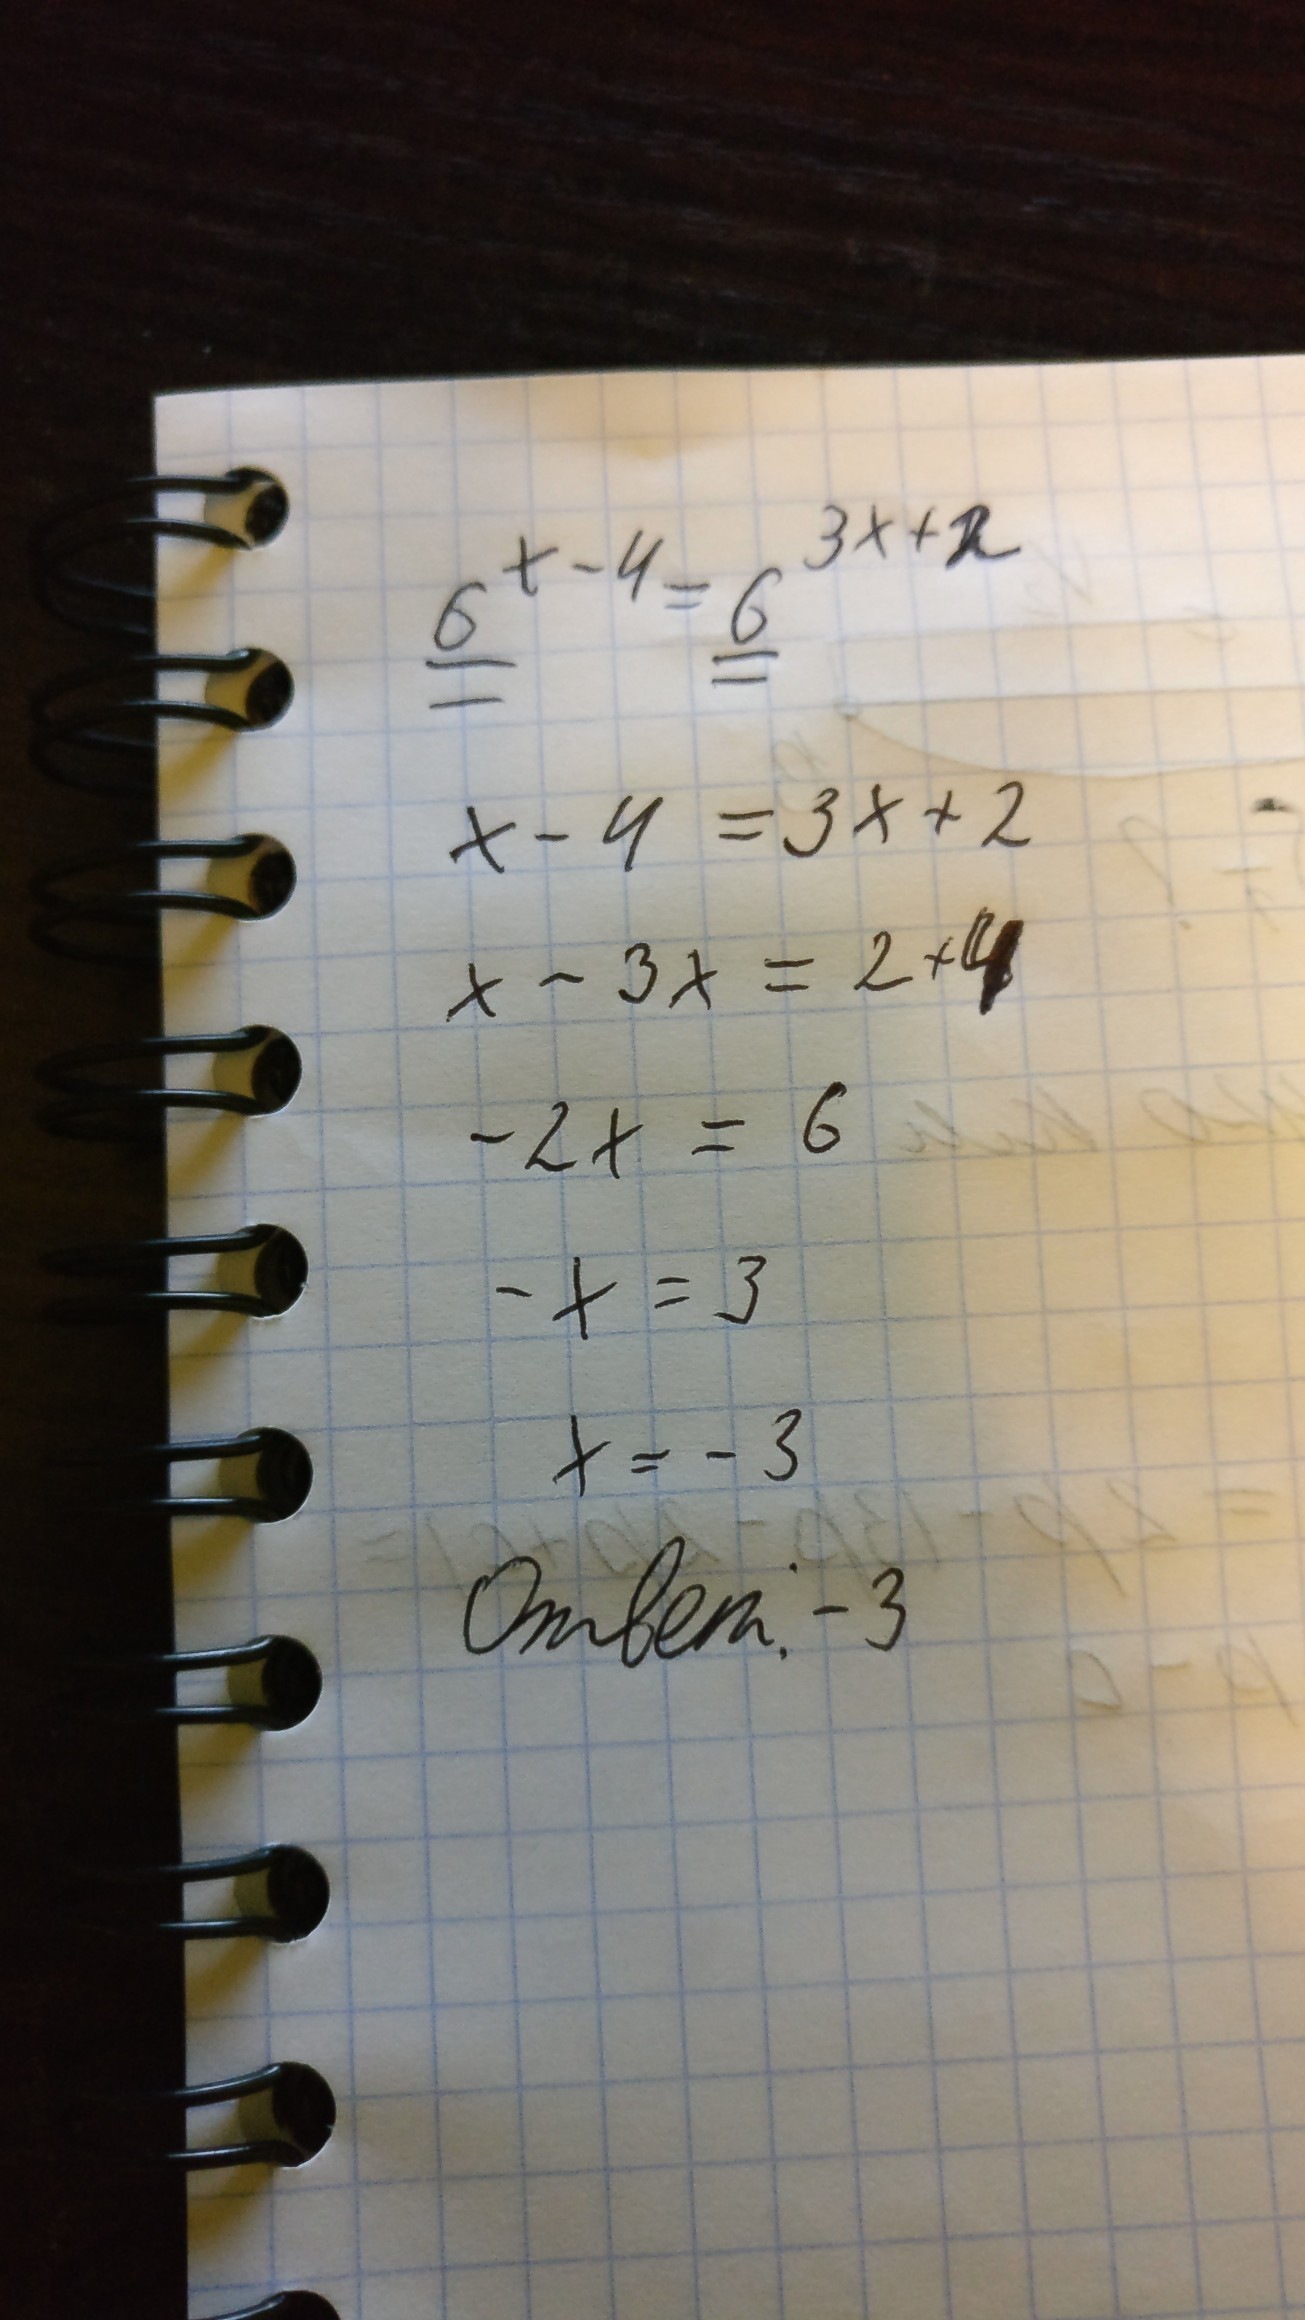 6^(x-4) = 6^(3x+2)
x - 4 = 3x + 2
x - 3x = 2+4
-2x = 6
-x = 3
x = -3
Ответ: -3